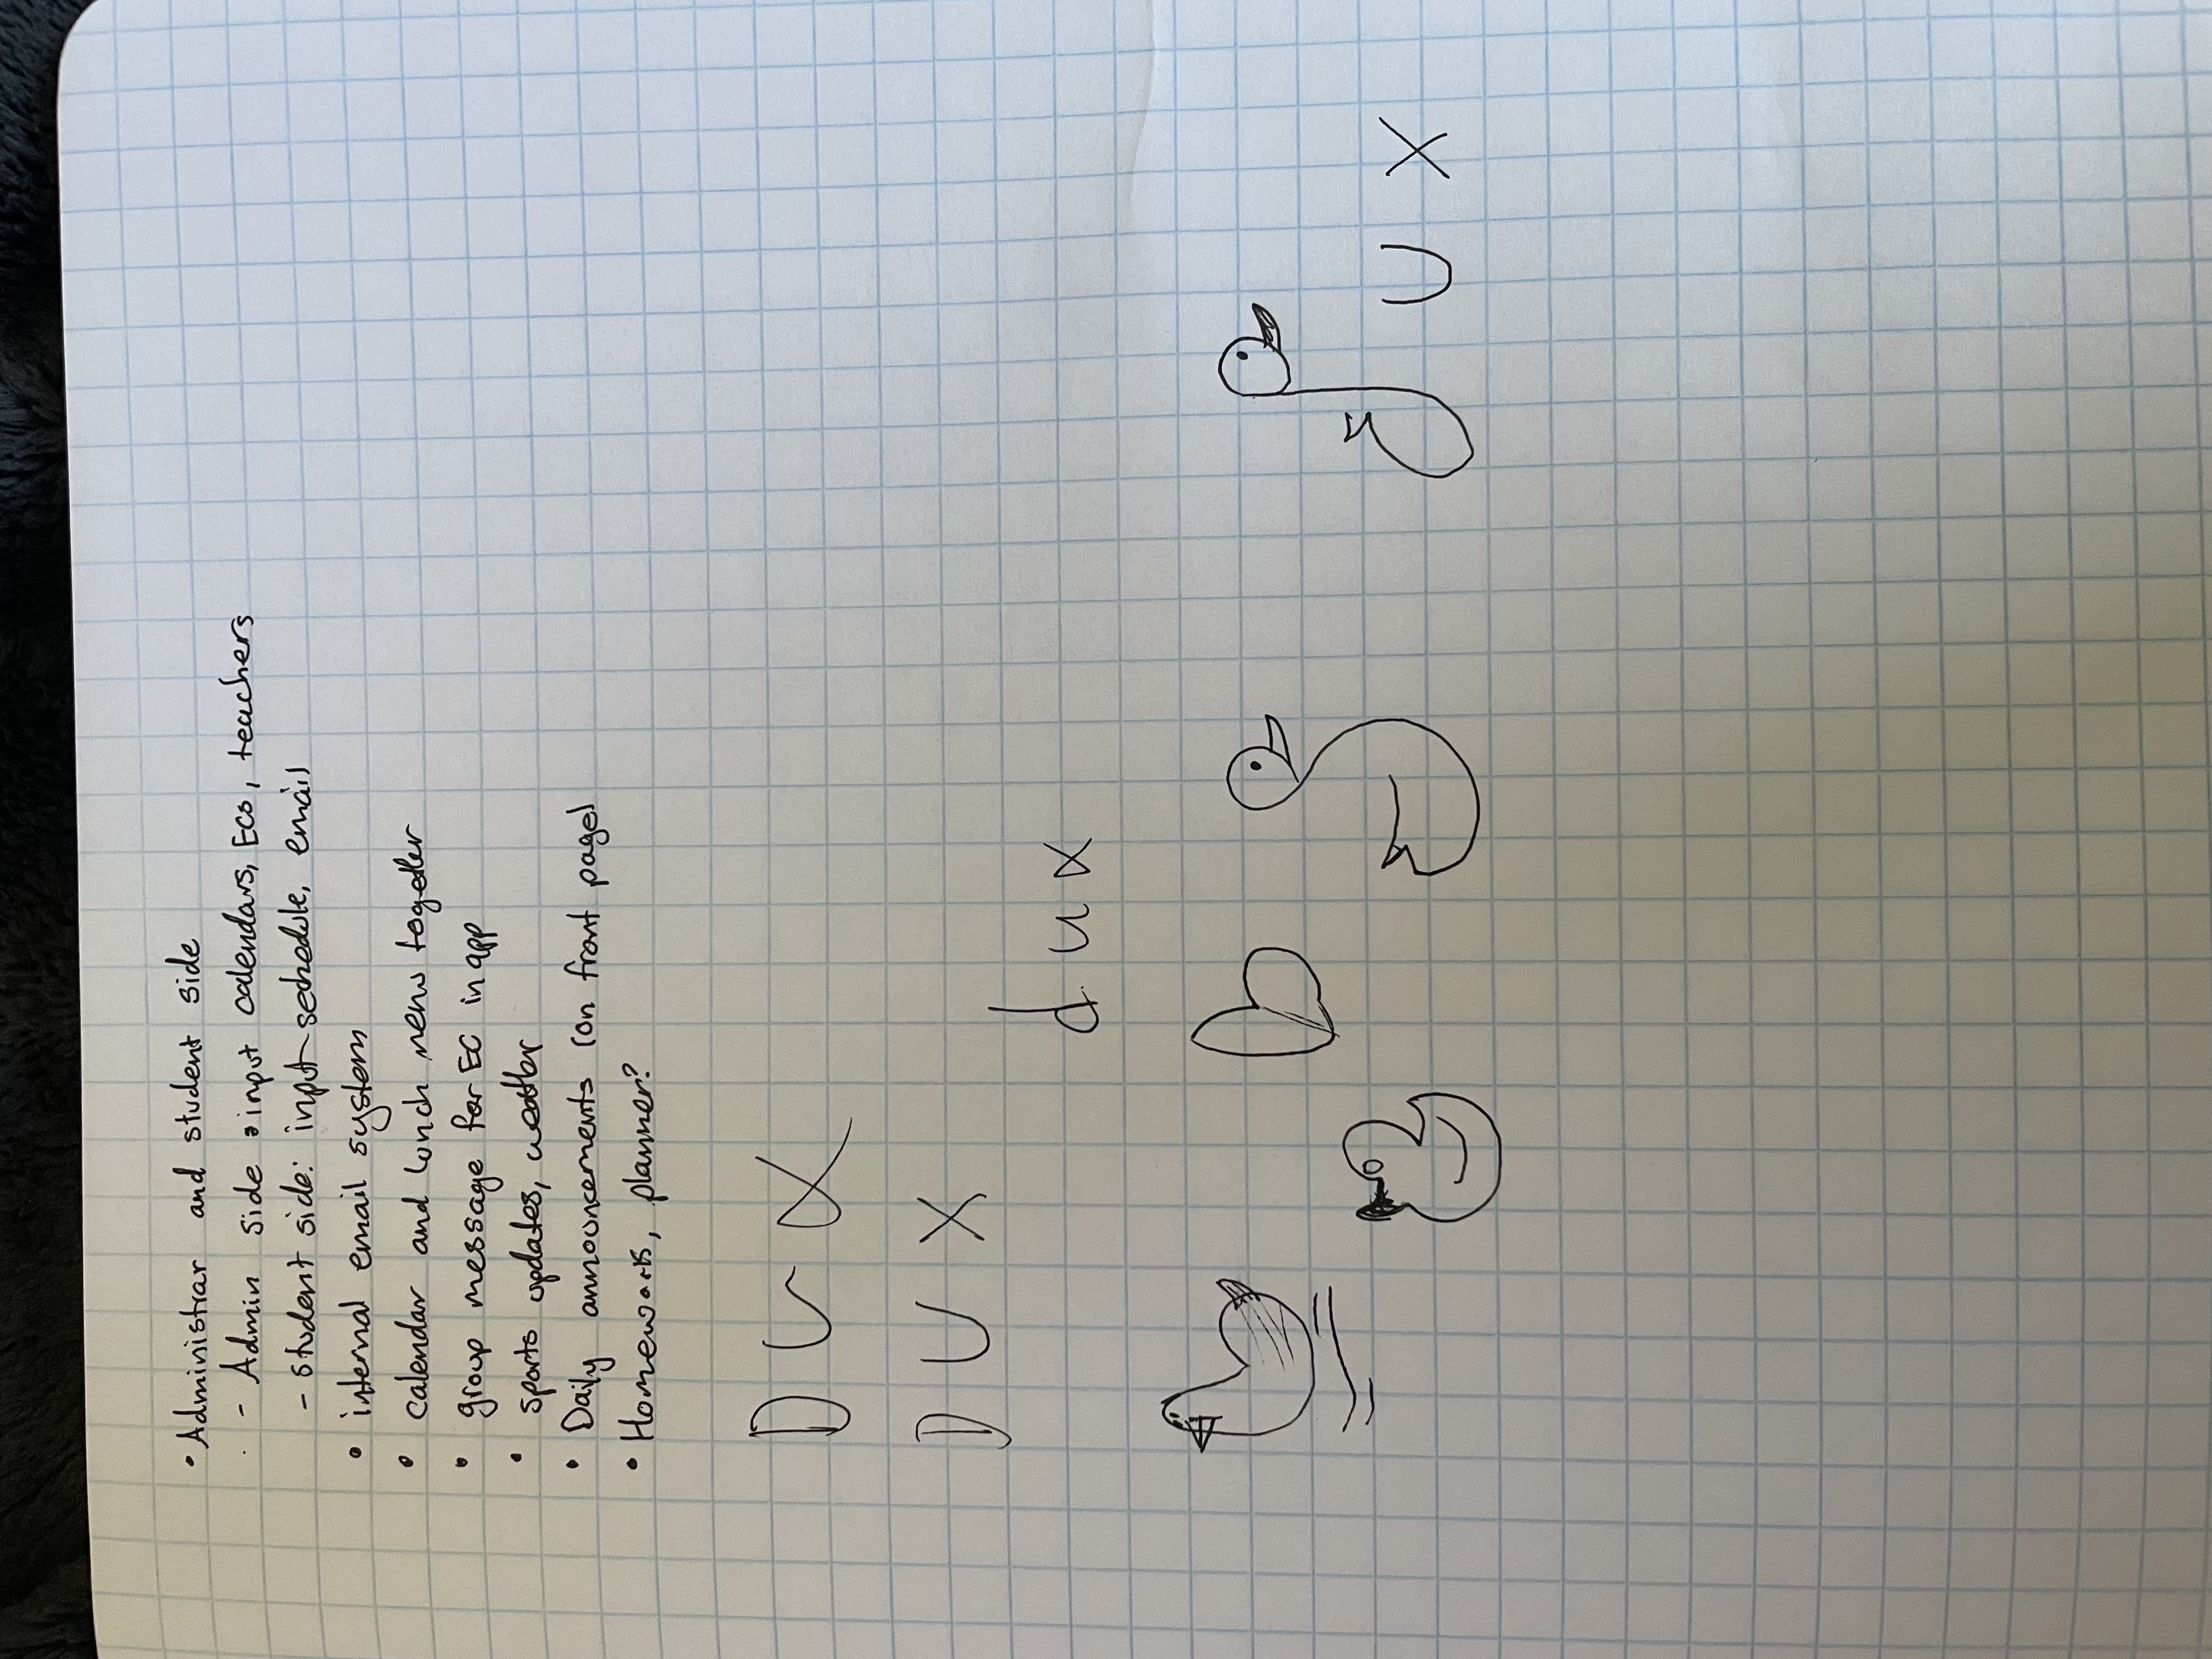 • Administrar and student side
- Admin side : input calendars, ECs, teachers
- student side: input schedule, email
• internal email system
• calendar and lunch menu together
• group message for EC in app
• sports updates, weather
• Daily announcements (on front page)
• Homework, planner?
DUX
DUX
dux
dUX